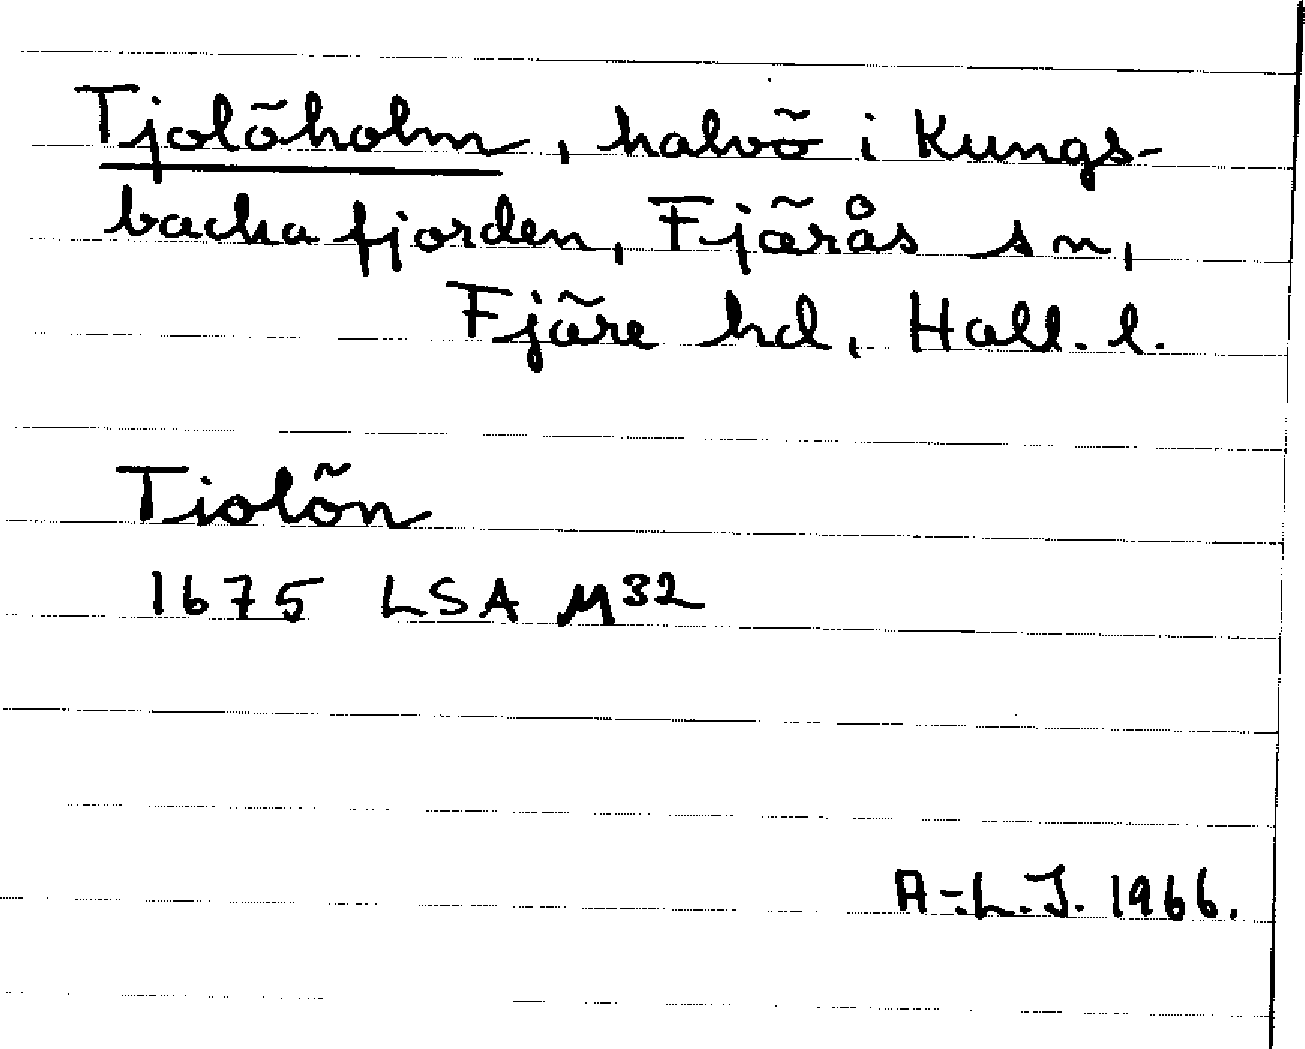 Tjolöholm, halvö i Kungs-
backafjorden, Fjärås sn,
Fjäre hd, Hall. l.
Tiolön
1675 LSA M32
A-:L.J. 1966.